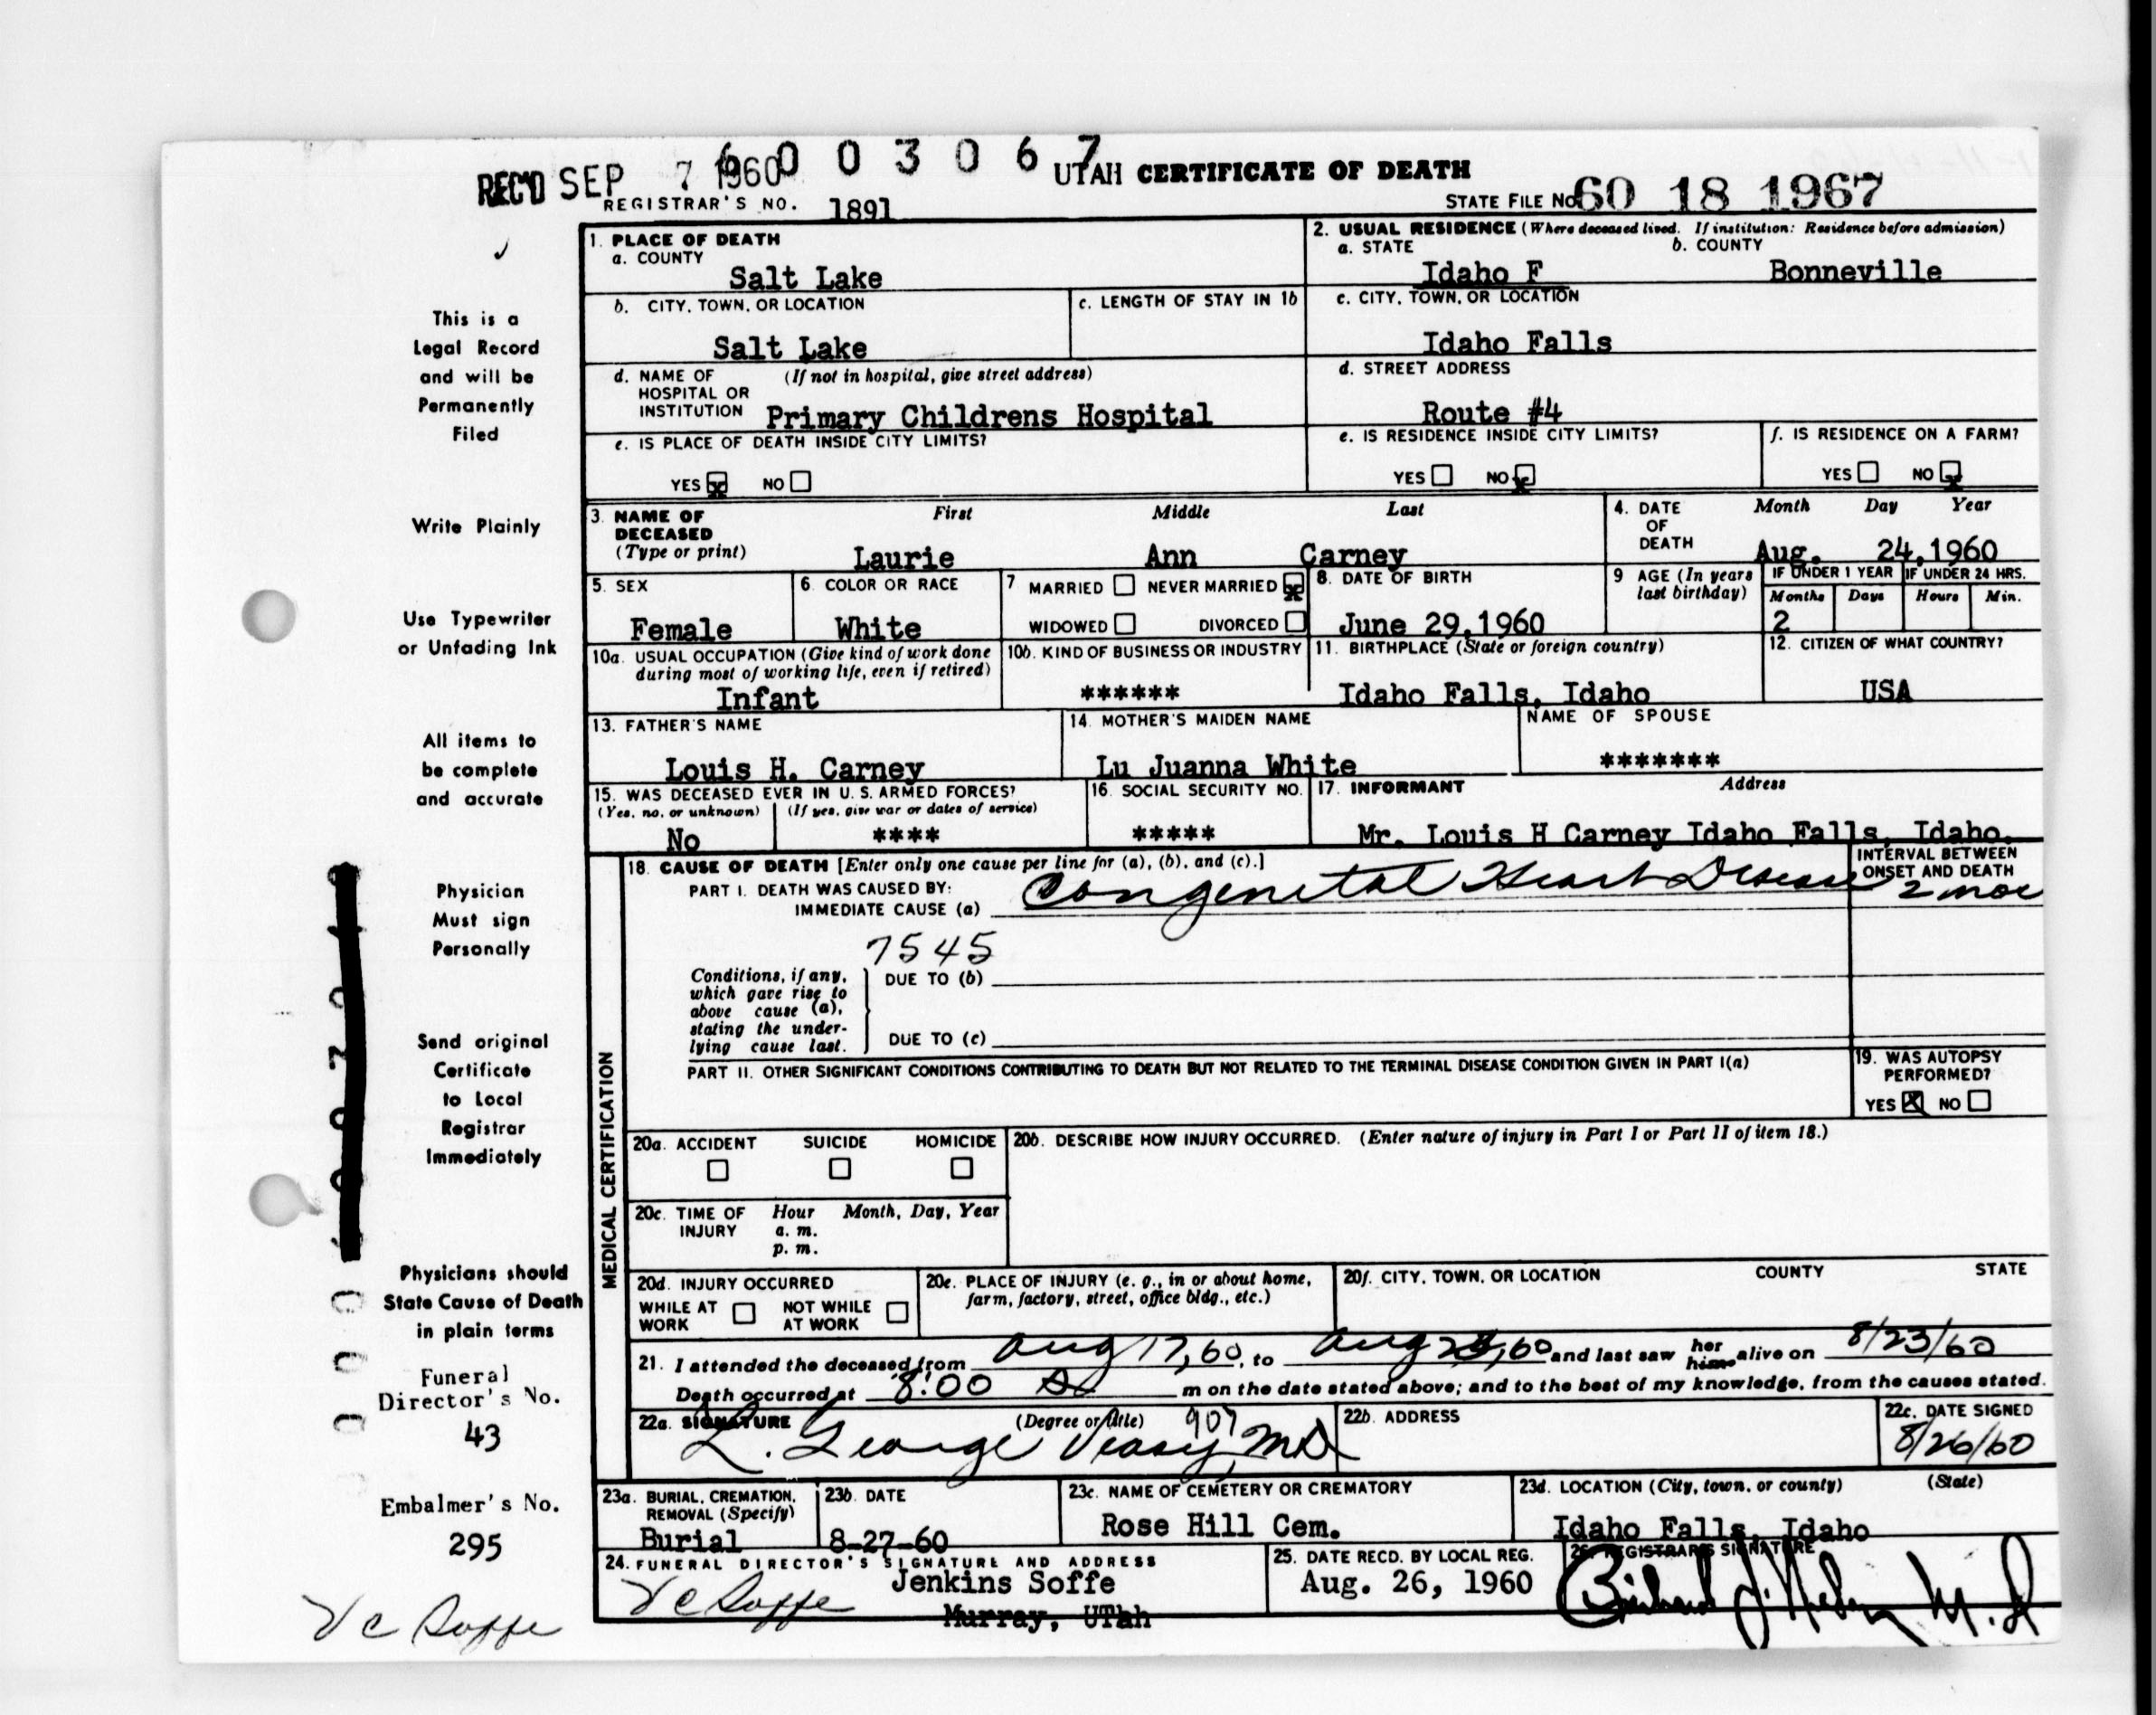 6 0 0 3 0 6 7
REC'D SEP 7 1960
UTAH CERTIFICATE OF DEATH
REGISTRAR'S NO. 1891
STATE FILE No. 60 18 1967
This is a
Legal Record
and will be
Permanently
Filed
Write Plainly
Use Typewriter
or Unfading Ink
All items to
be complete
and accurate
Physician
Must sign
Personally
Send original
Certificate
to Local
Registrar
Immediately
Physicians should
State Cause of Death
in plain terms
Funeral
Director's No.
43
Embalmer's No.
295
V C Soffe
1. PLACE OF DEATH
a. COUNTY
Salt Lake
b. CITY, TOWN, OR LOCATION
Salt Lake
c. LENGTH OF STAY IN 1b
d. NAME OF (If not in hospital, give street address)
HOSPITAL OR
INSTITUTION Primary Childrens Hospital
e. IS PLACE OF DEATH INSIDE CITY LIMITS?
YES x NO
2. USUAL RESIDENCE (Where deceased lived. If institution: Residence before admission)
a. STATE b. COUNTY
Idaho F Bonneville
c. CITY, TOWN, OR LOCATION
Idaho Falls
d. STREET ADDRESS
Route #4
e. IS RESIDENCE INSIDE CITY LIMITS?
YES NO x
f. IS RESIDENCE ON A FARM?
YES NO x
3. NAME OF DECEASED (Type or print)
First Middle Last
Laurie Ann Carney
4. DATE OF DEATH
Month Day Year
Aug. 24,1960
5. SEX
Female
6. COLOR OR RACE
White
7 MARRIED NEVER MARRIED x
WIDOWED DIVORCED
8. DATE OF BIRTH
June 29,1960
9 AGE (In years
last birthday)
IF UNDER 1 YEAR IF UNDER 24 HRS.
Months Days Hours Min.
2
10a. USUAL OCCUPATION (Give kind of work done
during most of working life, even if retired)
Infant
10b. KIND OF BUSINESS OR INDUSTRY
******
11. BIRTHPLACE (State or foreign country)
Idaho Falls, Idaho
12. CITIZEN OF WHAT COUNTRY?
USA
13. FATHER'S NAME
Louis H. Carney
14. MOTHER'S MAIDEN NAME
Lu Juanna White
NAME OF SPOUSE
*******
15. WAS DECEASED EVER IN U. S. ARMED FORCES?
(Yes, no, or unknown) (If yes, give war or dates of service)
No ****
16. SOCIAL SECURITY NO.
*****
17. INFORMANT Address
Mr. Louis H Carney Idaho Falls, Idaho.
MEDICAL CERTIFICATION
18. CAUSE OF DEATH [Enter only one cause per line for (a), (b), and (c).]
PART I. DEATH WAS CAUSED BY:
IMMEDIATE CAUSE (a) Congenital Heart Disease
INTERVAL BETWEEN
ONSET AND DEATH
2 mos
7545
Conditions, if any,
which gave rise to
above cause (a),
stating the under-
lying cause last.
DUE TO (b)
DUE TO (c)
PART II. OTHER SIGNIFICANT CONDITIONS CONTRIBUTING TO DEATH BUT NOT RELATED TO THE TERMINAL DISEASE CONDITION GIVEN IN PART I(a)
19. WAS AUTOPSY
PERFORMED?
YES X NO
20a. ACCIDENT SUICIDE HOMICIDE
20b. DESCRIBE HOW INJURY OCCURRED. (Enter nature of injury in Part I or Part II of item 18.)
20c. TIME OF INJURY Hour Month, Day, Year
a. m.
p. m.
20d. INJURY OCCURRED
WHILE AT WORK NOT WHILE AT WORK
20e. PLACE OF INJURY (e. g., in or about home,
farm, factory, street, office bldg., etc.)
20f. CITY, TOWN, OR LOCATION COUNTY STATE
21. I attended the deceased from Aug 17, 60, to Aug , 60 and last saw her him alive on 8/23/60
Death occurred at 8:00 a m on the date stated above; and to the best of my knowledge, from the causes stated.
22a. SIGNATURE (Degree or title) 907
L. George Veasy, MD
22b. ADDRESS
22c. DATE SIGNED
8/26/60
23a. BURIAL, CREMATION,
REMOVAL (Specify)
Burial
23b. DATE
8-27-60
23c. NAME OF CEMETERY OR CREMATORY
Rose Hill Cem.
23d. LOCATION (City, town, or county) (State)
Idaho Falls, Idaho
24. FUNERAL DIRECTOR'S SIGNATURE AND ADDRESS
V C Soffe Jenkins Soffe
Murray, UTah
25. DATE RECD. BY LOCAL REG.
Aug. 26, 1960
26. REGISTRAR'S SIGNATURE
M. D